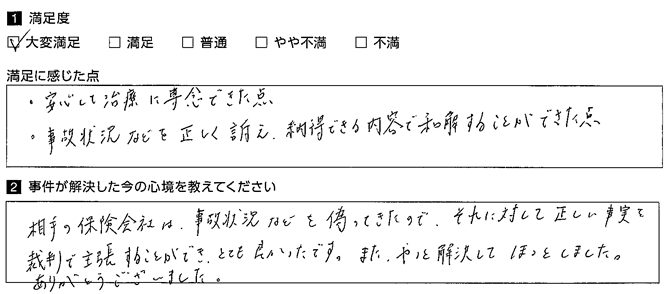 1 満足度
☑ 大変満足 □ 満足 □ 普通 □ やや不満 □ 不満
満足に感じた点
・安心して治療に専念できた点
・事故状況などを正しく訴え、納得できる内容で和解することができた点
2 事件が解決した今の心境を教えてください
相手の保険会社は、事故状況などを偽ってきたので、それに対して正しい事実を
裁判で主張することができ、とても良かったです。また、やっと解決してほっとしました。
ありがとうございました。